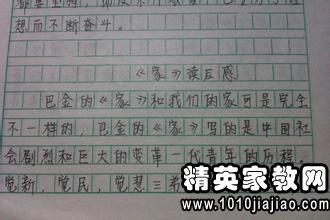 想而不断奋斗。
《家》读后感
巴金的《家》和我们的家可是完全
不一样的，巴金的《家》写的是中国社
会剧烈和巨大的变革一代青年的历程。
觉新，觉民，觉慧三弟
精英家教网
www.1010jiajiao.com